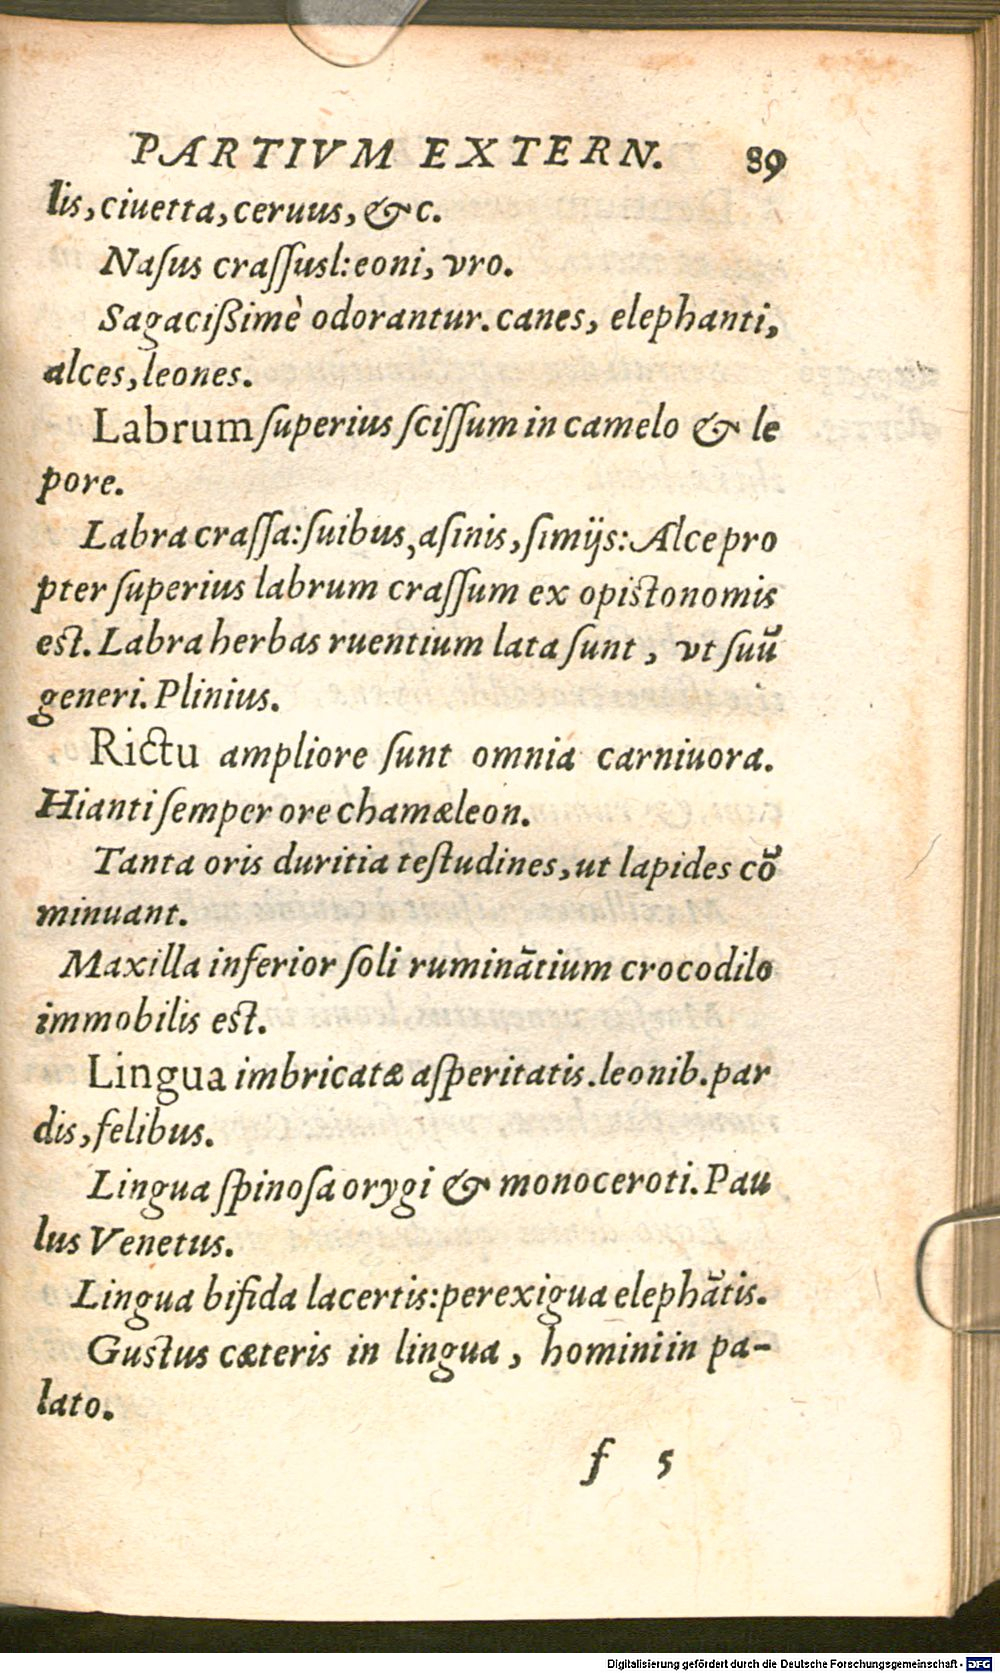 PARTIVM EXTERN. 89
lis, ciuetta, ceruus, &c.
Naſus craſſusl: eoni, vro.
Sagacißimè odorantur. canes, elephanti,
alces, leones.
Labrum ſuperius ſciſſum in camelo & le
pore.
Labra craſſa: ſuibus, aſinis, ſimijs: Alce pro
pter ſuperius labrum craſſum ex opistonomis
est. Labra herbas ruentium lata ſunt, vt ſuũ
generi. Plinius.
Rictu ampliore ſunt omnia carniuora.
Hianti ſemper ore chamæleon.
Tanta oris duritia teſtudines, ut lapides cõ
minuant.
Maxilla inferior ſoli ruminãtium crocodilo
immobilis est.
Lingua imbricatæ aſperitatis. leonib. par
dis, felibus.
Lingua ſpinoſa orygi & monoceroti. Pau
lus Venetus.
Lingua bifida lacertis: perexigua elephãtis.
Gustus cæteris in lingua, homini in pa-
lato.
f 5
Digitalisierung gefördert durch die Deutsche Forschungsgemeinschaft - DFG